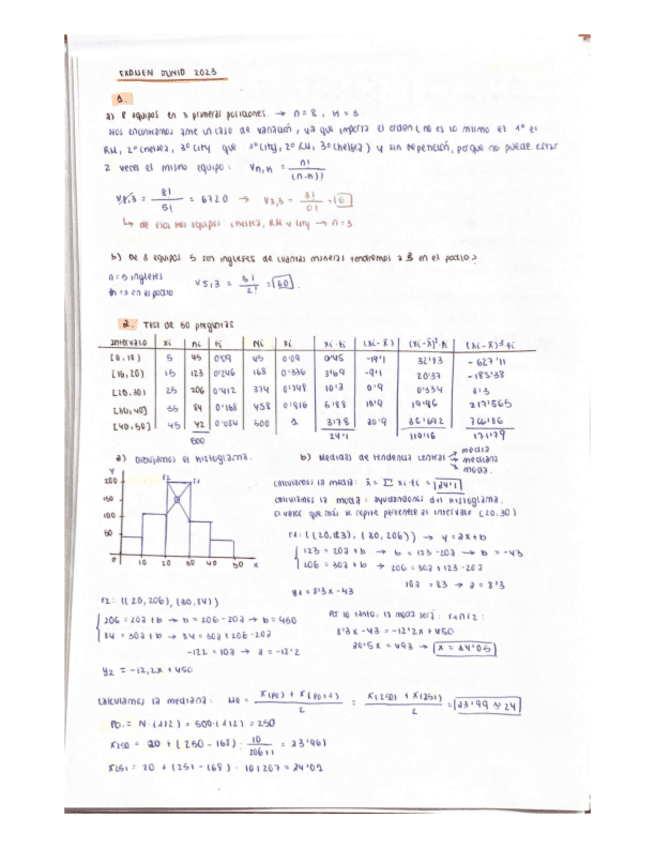 EXAMEN JUNIO 2023
1.
a) 8 equipos en 3 primeras posiciones. → n=8, k=3
Nos encontramos ante un caso de variación, ya que importa el orden (no es lo mismo el 1º el
RM, 2º Chelsea, 3º City que 1º City, 2º RM, 3º Chelsea) y sin repetición, porque no puede estar
2 veces el mismo equipo: Vn,k = n! / (n-k)!
V8,3 = 8! / 5! = 6720 → V3,3 = 3! / 0! = 6
↳ de esos tres equipos Chelsea, RM y City → n=3
b) De 8 equipos 5 son ingleses de cuantas maneras tendremos a 3 en el podio?
n=5 ingleses V5,3 = 5! / 2! = 60.
en el podio
2. Test de 50 preguntas
Intervalo xi ni fi Ni Fi xi·fi (xi-x̄) (xi-x̄)²·fi (xi-x̄)³·fi
5 45 0'09 45 0'09 0'45 -19'1 32'83 -627'11
[10,20) 15 123 0'246 168 0'336 3'69 -9'1 20'37 -185'38
[20,30) 25 206 0'412 374 0'748 10'3 0'9 0'334 0'3
[30,40) 35 84 0'168 458 0'916 5'88 10'9 19'96 217'565
[40,50] 45 42 0'084 500 1 3'78 20'9 36'692 766'86
500 24'1 110'16
a) Dibujamos el histograma. b) Medidas de tendencia central → media
mediana
moda.
Y
200
150
100
50
0 10 20 30 40 50 x
Calculamos la media: x̄ = Σ xi·fi = 24'1
Calculamos la moda: ayudandonos del histograma.
El valor que más se repite pertenece al intervalo [20,30)
r1: ((20,123), (30,206)) → y = ax+b
123 = 20a+b → b = 123-20a → b = -43
206 = 30a+b → 206 = 30a+123-20a
10a = 83 → a = 8'3
y1 = 8'3x-43
r2: ((20,206), (30,84))
206 = 20a+b → b = 206-20a → b = 450
84 = 30a+b → 84 = 30a+206-20a
-122 = 10a → a = -12'2
y2 = -12,2x+450
Por lo tanto, la moda será: r1∩r2:
8'3x-43 = -12'2x+450
20'5x = 493 → x = 24'05
Calculamos la mediana: Me = x(po) + x(po+1) / 2 = x(250) + x(251) / 2 = 23'99 ≈ 24
Po = N·(1/2) = 500·(1/2) = 250
x250 = 20 + (250-168)· 10 / 206+1 = 23'961
x251 = 20 + (251-168) · 10/207 = 24'01